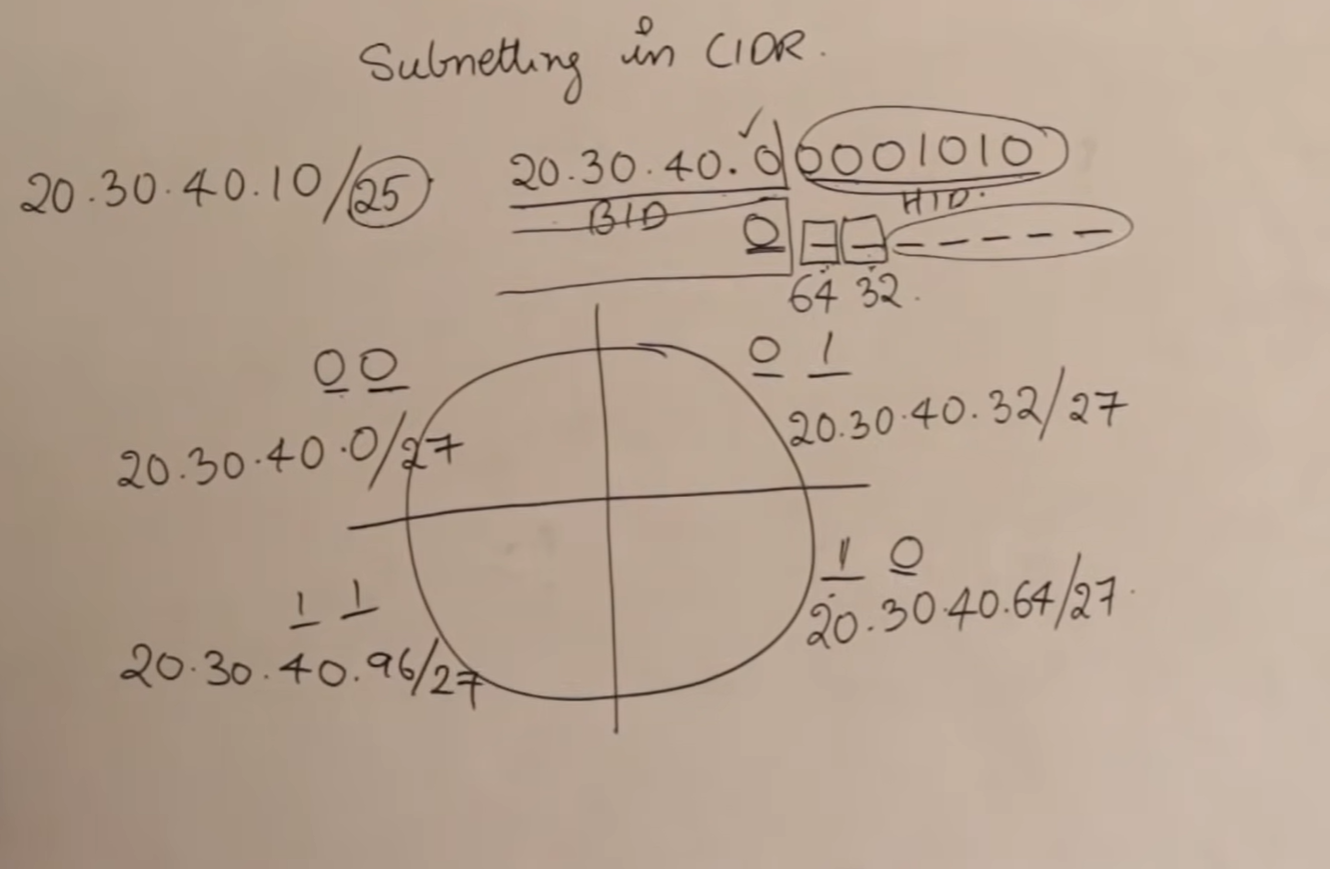 Subnetting in CIDR.
20.30.40.10/25
20.30.40.0 0001010
BID
HID.
0 - - - - - - -
64 32.
00
0 1
20.30.40.0/27
20.30.40.32/27
1 1
1 0
20.30.40.96/27
20.30.40.64/27